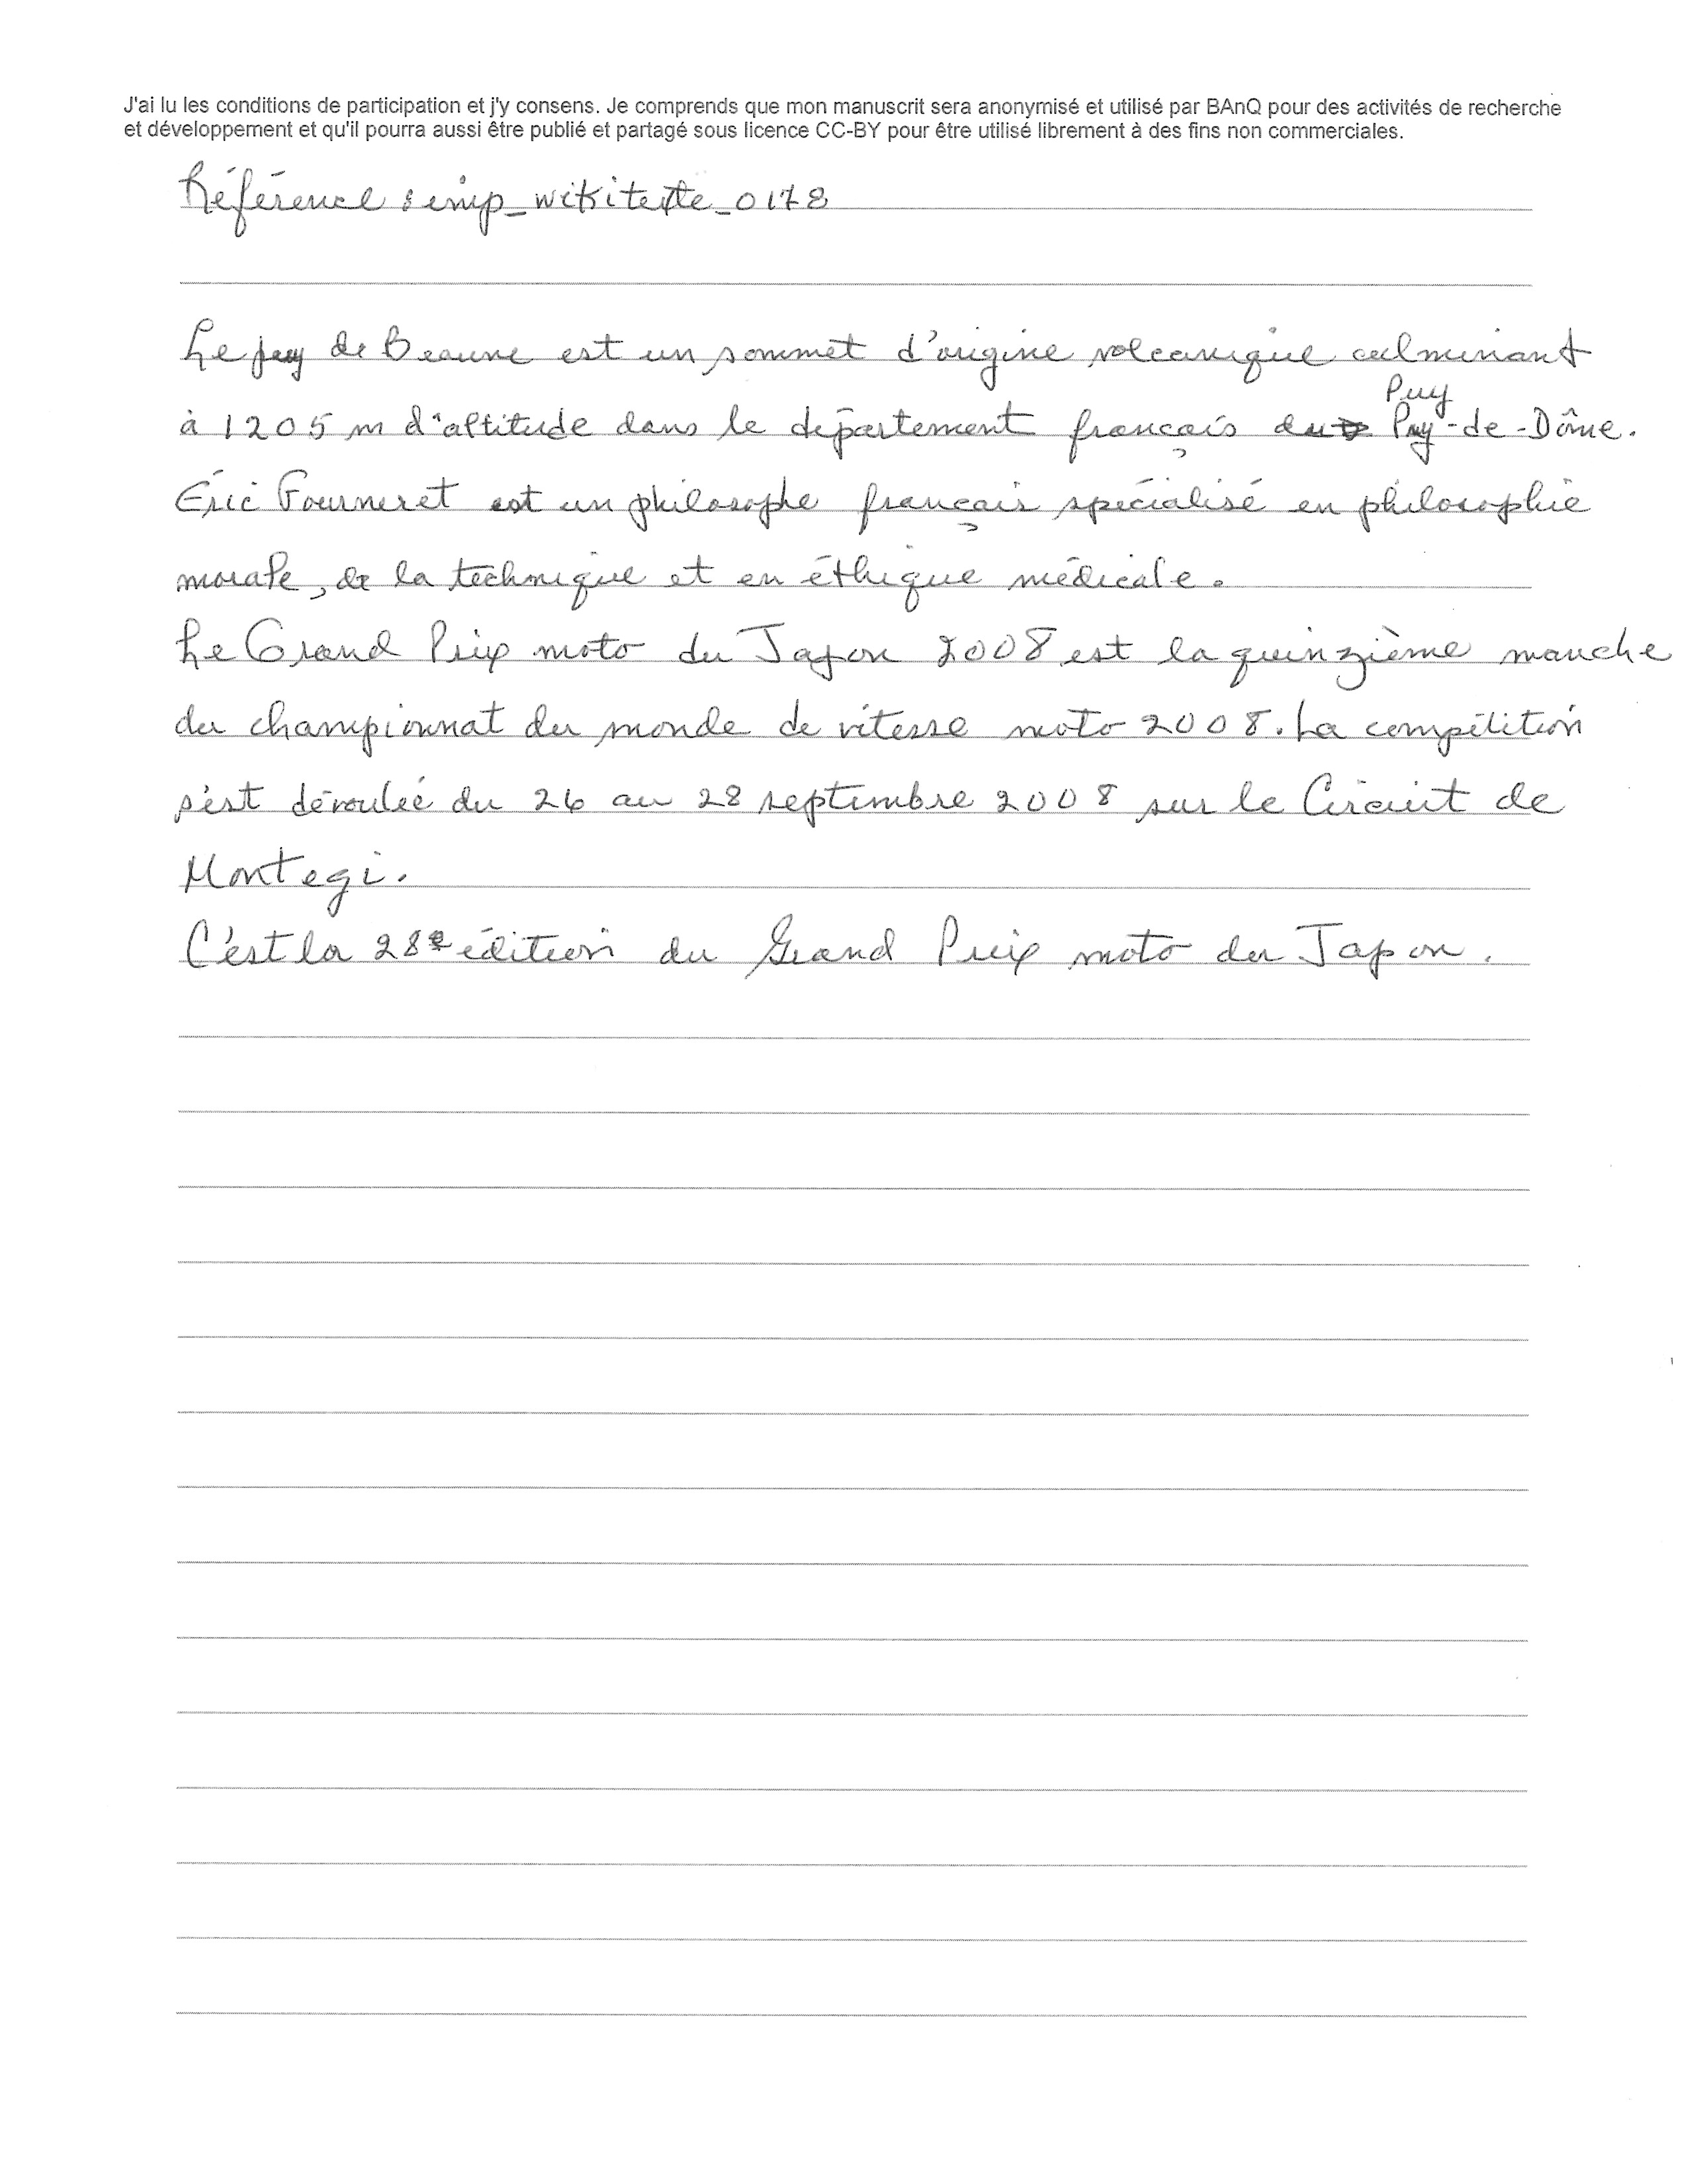 J'ai lu les conditions de participation et j'y consens. Je comprends que mon manuscrit sera anonymisé et utilisé par BAnQ pour des activités de recherche
et développement et qu'il pourra aussi être publié et partagé sous licence CC-BY pour être utilisé librement à des fins non commerciales.
Référence : imp_wikitexte_0178
Le puy de Beaune est un sommet d'origine volcanique culminant
Puy
à 1205 m d'altitude dans le département français du Puy-de-Dôme.
Éric Fourneret est un philosophe français spécialisé en philosophie
morale, de la technique et en éthique médicale.
Le Grand Prix moto du Japon 2008 est la quinzième manche
du championnat du monde de vitesse moto 2008. La compétition
s'est déroulée du 26 au 28 septembre 2008 sur le Circuit de
Montegi.
C'est la 28e édition du Grand Prix moto du Japon.